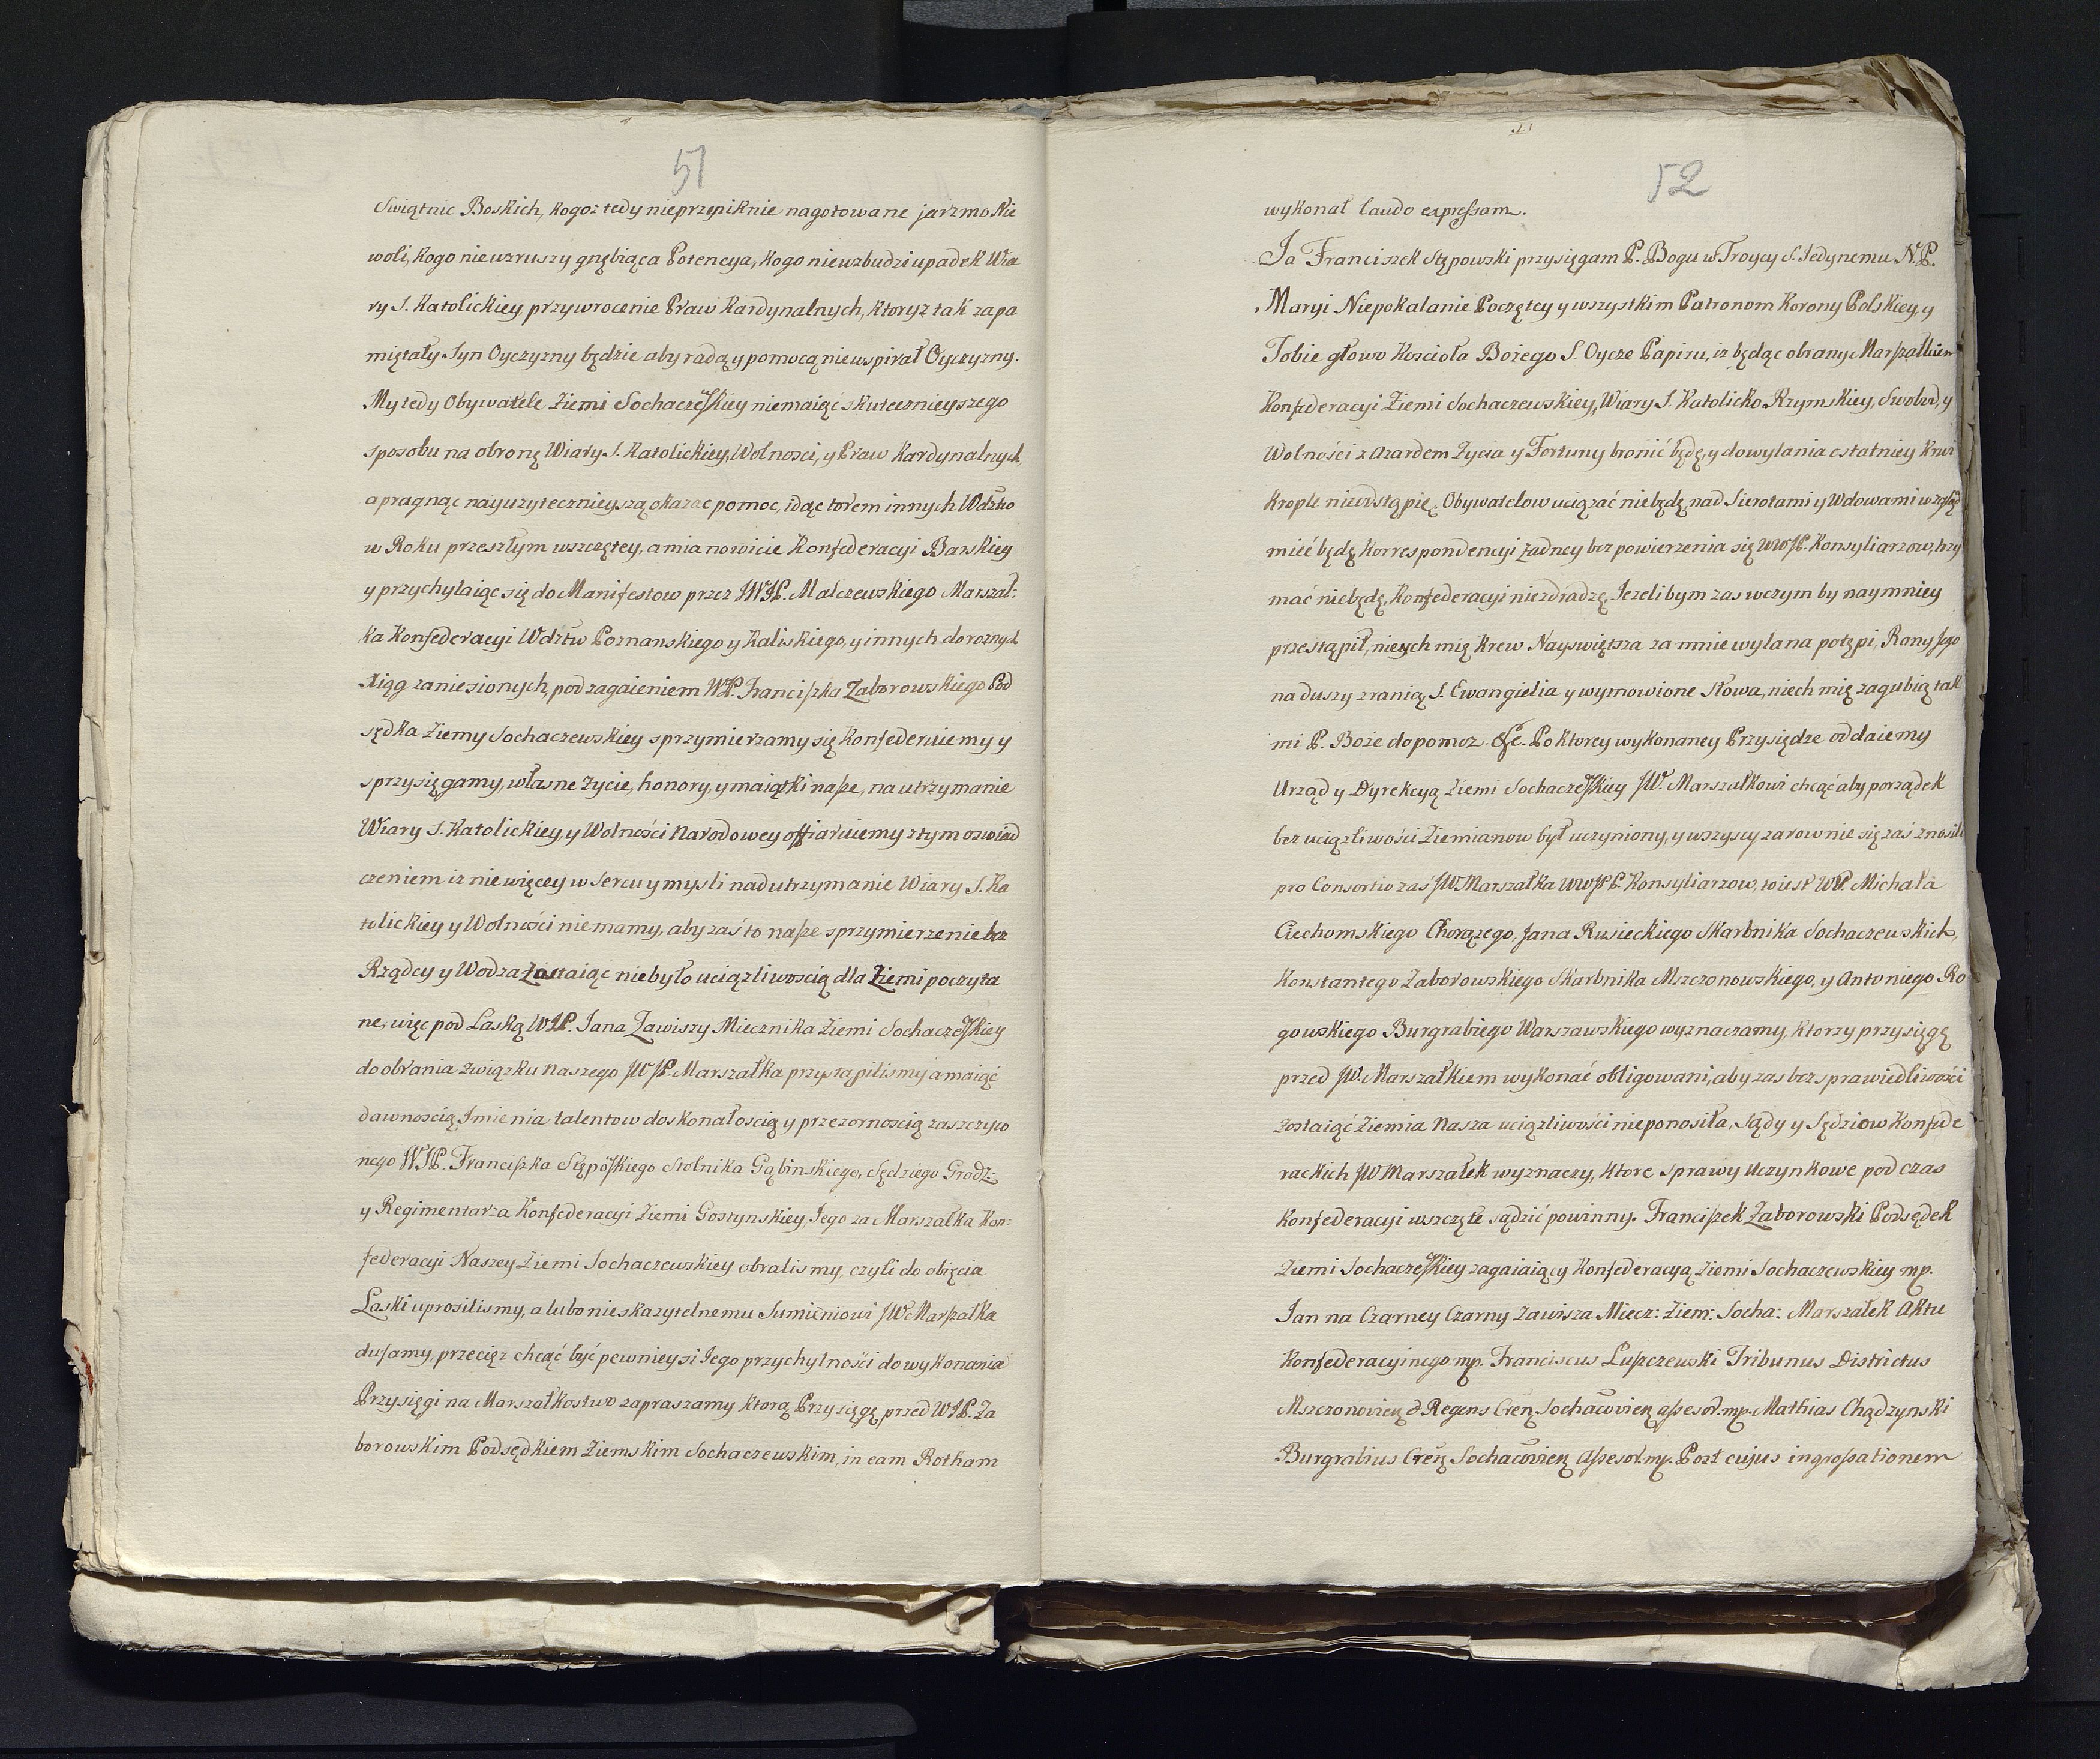 51
Swiątnic Boskich, kogoż tedy nieprzeniknie nagotowane jarzmo Nie
woli, kogo niewzruszy gnębiąca Potencya, kogo niewzbudzi upadek Wia
ry S. Katolickiey przywrocenie Praw Kardynalnych, ktoryz tak zapa
miętały Syn Oyczyzny będzie aby radą y pomocą niewspirał Oyczyzny.
My tedy Obywatele Ziemi Sochaczeskiey niemaiąc skutecznieyszego
sposobu na obronę Wiary S. Katolickiey, Wolnosci, y Praw Kardynalnych,
a pragnąc nayuzytecznieyszą okazac pomoc, idąc torem innych Wdztw
w Roku przeszłym wszczętey, a mianowicie Konfederacyi Barskiey
y przychylaiąc się do Manifestow przez JWJP. Malczewskiego Marszał:
ka Konfederacyi Wdztw Poznanskiego y Kaliskiego, y innych do roznych
Xiąg zaniesionych, pod zagaieniem WJP. Franciszka Zaborowskiego Pod
sędka Ziemy Sochaczewskiey sprzymierzamy się Konfederuiemy y
sprzysięgamy, własne zycie, honory, y maiątki nasze, na utrzymanie
Wiary S. Katolickiey, y Wolności Narodowey offiaruiemy z tym oswiad
czeniem iz nie więcey w sercu y mysli nad utrzymanie Wiary S. Ka
tolickiey y Wolności niemamy, aby zaś to nasze sprzymierzenie bez
Rządcy y Wodza Zostaiąc niebyło uciązliwoscią dla Ziemi poczyta
ne, więc pod Laską WJP. Jana Zawiszy Miecznika Ziemi Sochaczeskiey
do obrania związku naszego JWJP. Marszałka przystąpilismy a maiąc
dawnoscią Jmienia talentow doskonałoscią y przezornoscią zaszczyco
nego WJP. Franciszka Stęposkiego Stolnika Gąbinskiego, Sędziego Grodz:
y Regimentarza Konfederacyi Ziemi Gostynskiey, Jego za Marszałka Kon:
federacyi Naszey Ziemi Sochaczewskiey obralismy, czyli do obięcia
Laski uprosilismy, a lubo nieskazytelnemu Sumieniowi JW Marszałka
dufamy, przeciez chcąc być pewnieysi Jego przychylności do wykonania
Przysięgi na Marszałkostwo zapraszamy ktorą Przysięgę przed WJP. Za
borowskim Podsędkiem Ziemskim Sochaczewskim, in eam Rotham
52
wykonał laudo expressam.
Ja Franciszek Stępowski przysięgam P. Bogu w Troycy S. Jedynemu N. P.
Maryi Niepokalanie Poczętey y wszystkim Patronom Korony Polskiey, y
Tobie głowo Koscioła Bożego S. Oycze Papizu, iz będąc obrany Marszałkiem
Konfederacyi Ziemi Sochaczewskiey, Wiary S. Katolicko Rzymskiey, Swobod, y
Wolności z Azardem Zycia y Fortuny bronić będę, y do wylania ostatniey krwi
krople nieodstąpię. Obywatelow uciązać niebędę, nad Sierotami y Wdowami wzgląd
mieć będę Korrespondencyi żadney bez powierzenia się WWJP. Konsyliarzow, trzy
mać niebędę, Konfederacyi niezdradzę, Jezelibym zas wczym by naymniey
przestąpił, niech mię Krew Nayswiętsza za mnie wylana potępi, Rany Jego
na duszy zranią S. Ewangielia y wymowione słowa, niech mię zagubią tak
mi P. Boże dopomoz &c. Po ktorey wykonaney Przysiędze oddaiemy
Urząd y Dyrekcyą Ziemi Sochaczeskiey JW. Marszałkowi chcąc aby porządek
bez uciązliwości Ziemianow był uczyniony, y wszyscy zarownie się zaś znosili
pro Consortio zaś JW. Marszałka WWJP. Konsyliarzow, toiest WP. Michała
Ciechomskiego Chorązego, Jana Rusieckiego Skarbnika Sochaczewskich,
Konstantego Zaborowskiego Skarbnika Mszczonowskiego, y Antoniego Ro
gowskiego Burgrabiego Warszawskiego wyznaczamy, ktorzy przysięgę
przed JW. Marszałkiem wykonać obligowani, aby zas bez sprawiedliwości
zostaiąć Ziemia Nasza uciązliwości nieponosiła, Sądy y Sędziow Konfede
rackich JW Marszałek wyznaczy, ktore sprawy Uczynkowe pod czas
Konfederacyi wszczęte sądzić powinny. Franciszek Zaborowski Podsędek
Ziemi Sochaczeskiey zagaiaiący Konfederacyą Ziemi Sochaczewskiey mp.
Jan na Czarney Czarny Zawisza Miecz: Ziem: Socha: Marszałek Aktu
Konfederacyinego mp. Franciscus Luszczewski Tribunus Districtus
Mszczonovien & Regens Cren Sochacovien assesor mp. Mathias Chądzynski
Burgrabius Cren Sochacovien Assesor mp. Post cujus ingrossationem